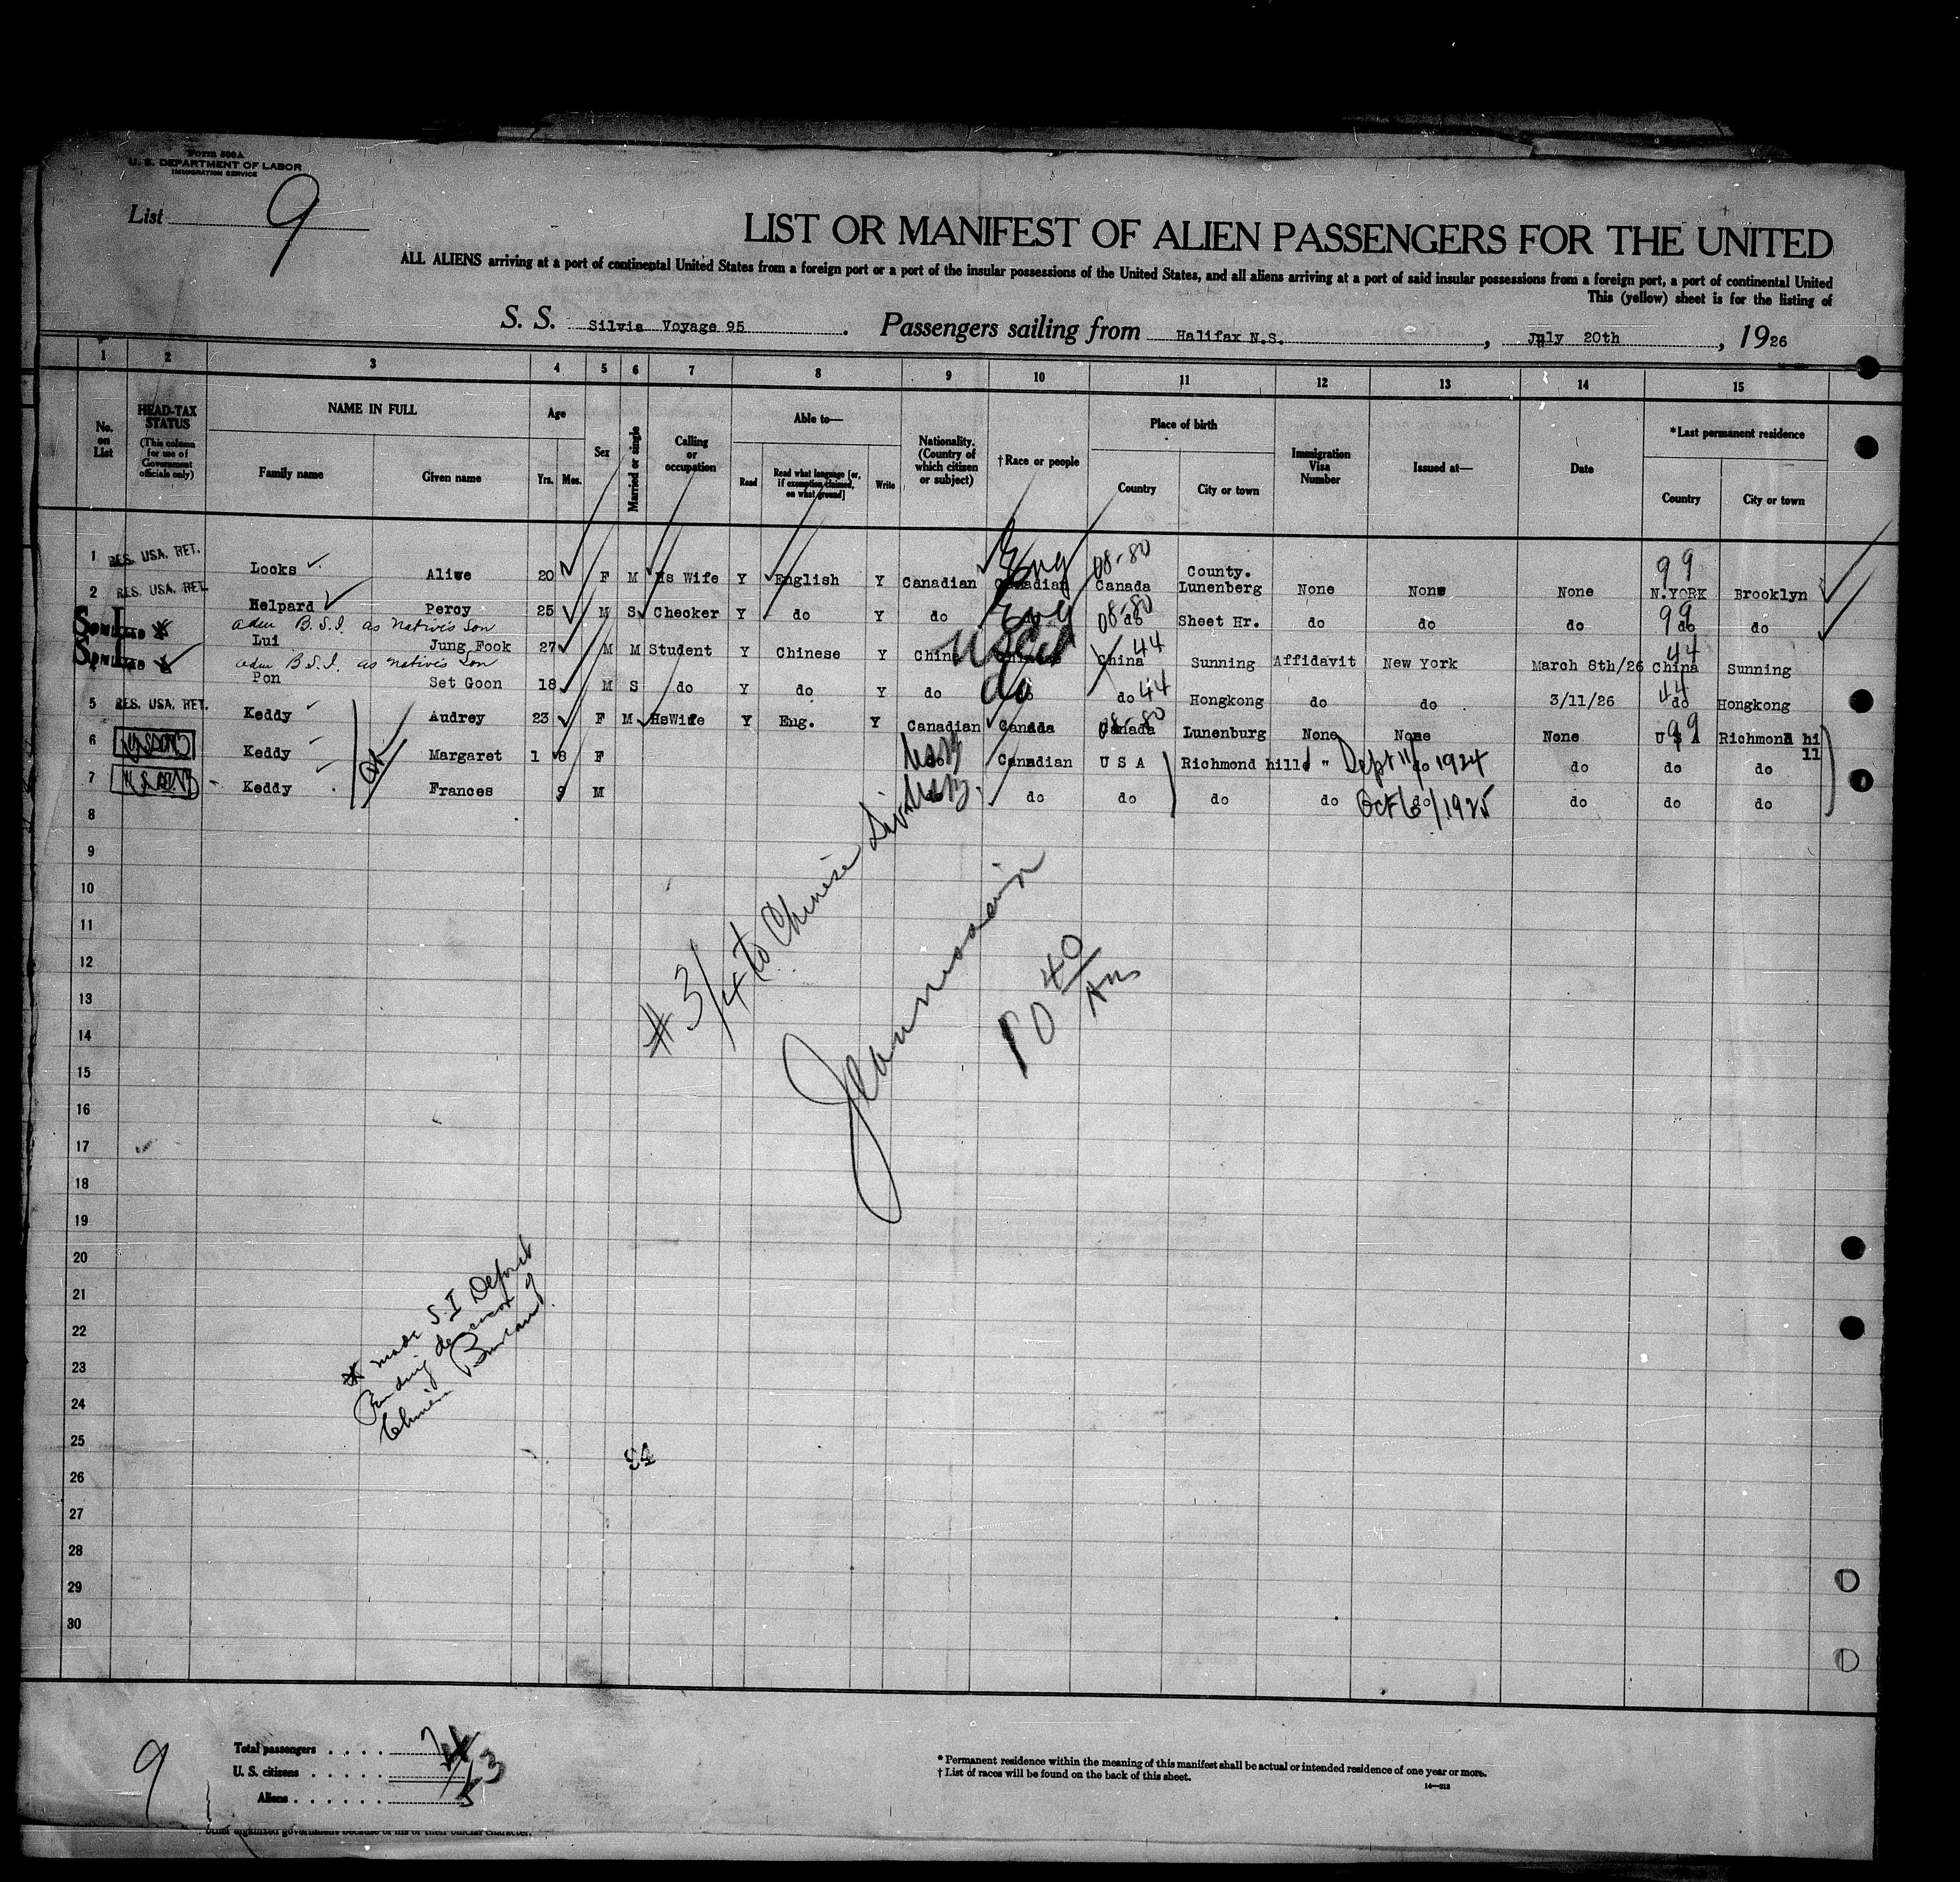 Form 500A
U. S. DEPARTMENT OF LABOR
IMMIGRATION SERVICE
List 9
LIST OR MANIFEST OF ALIEN PASSENGERS FOR THE UNITED
ALL ALIENS arriving at a port of continental United States from a foreign port or a port of the insular possessions of the United States, and all aliens arriving at a port of said insular possessions from a foreign port, a port of continental United
This (yellow) sheet is for the listing of
S. S. Silvia Voyage 95. Passengers sailing from Halifax N.S., July 20th, 1926
1 2 3 4 5 6 7 8 9 10 11 12 13 14 15
No. on List
HEAD-TAX STATUS (This column for use of Government officials only)
NAME IN FULL Family name Given name
Age Yrs. Mos.
Sex
Married or single
Calling or occupation
Able to— Read Read what language [or, if exemption claimed, on what ground] Write
Nationality. (Country of which citizen or subject)
†Race or people
Place of birth Country City or town
Immigration Visa Number
Issued at—
Date
*Last permanent residence Country City or town
1 RES. USA. RET. Locks Alive 20 F M Hs Wife Y English Y Canadian Canadian Eng 08-80 Canada County. Lunenberg None None None 99 N.YORK Brooklyn
2 RES. USA. RET. Helpard Percy 25 M S Checker Y do Y do Eng 08-80 do Sheet Hr. do do do 99 do do
adm B.S.I. as native's son
S I Lui Jung Fook 27 M M Student Y Chinese Y Chin USCit China 44 Sunning Affidavit New York March 8th/26 44 China Sunning
adm B.S.I. as native's son
S I Pon Set Goon 18 M S do Y do Y do do do 44 Hongkong do do 3/11/26 44 do Hongkong
5 RES. USA. RET. Keddy Audrey 23 F M HsWife Y Eng. Y Canadian Canada 08-80 Canada Lunenburg None None None 99 U S A Richmond hi
11
6 Keddy Margaret 1 8 F do Canadian U S A Richmond hilld " Sept 11/1924 do do do do
7 Keddy Frances 9 M do do do do do Oct 6/1925 do do do do
8
9
10
11
12
13
14
15
16
17
18
19
20
21
22
23
24
25
26
27
28
29
30
# 3/4 to Chinese Div
10 40 Am
* made S.I Deport
Pending decision of
Chinese Bureau
9
Total passengers . . . . 7
U. S. citizens . . . . .
Aliens . . . . . .
* Permanent residence within the meaning of this manifest shall be actual or intended residence of one year or more.
† List of races will be found on the back of this sheet.
other organized government because of his or their official character.